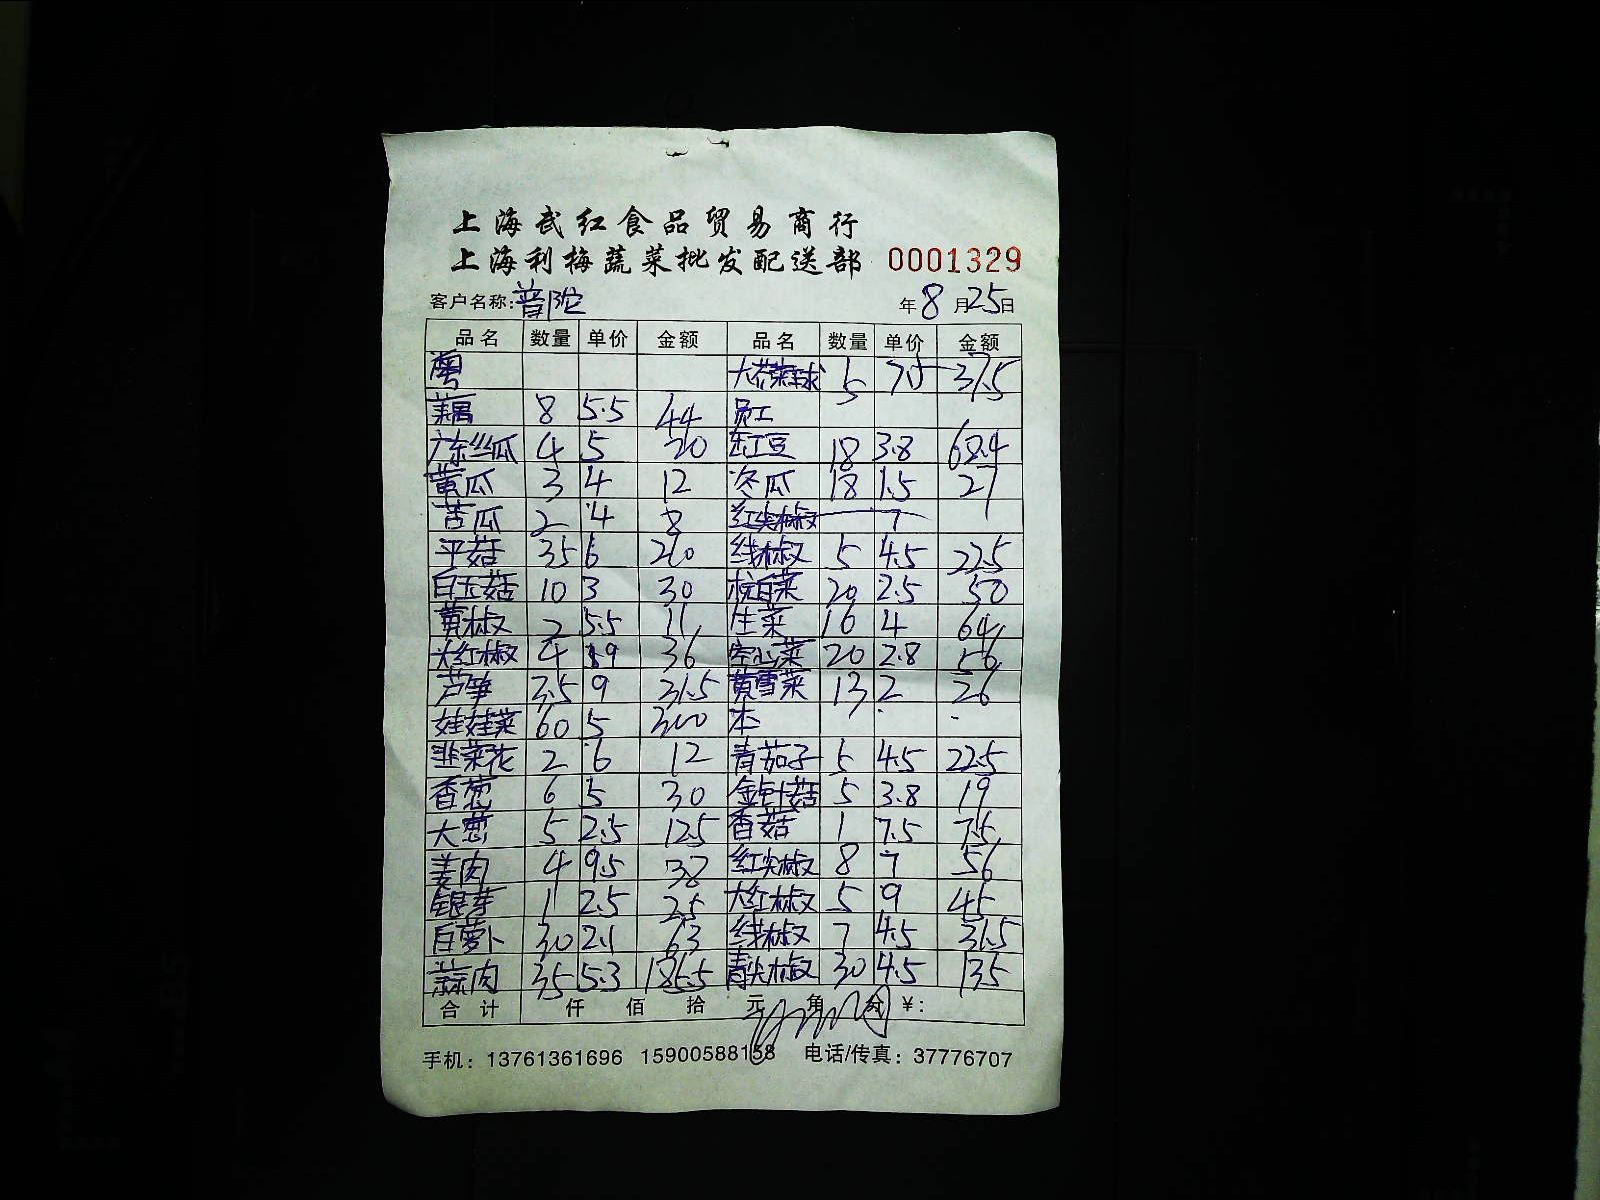 上海武红食品贸易商行
上海利梅蔬菜批发配送部 0001329
客户名称:普陀 年8月25日
品名 数量 单价 金额 品名 数量 单价 金额
粤 大芥菜球 5 7.5 37.5
藕 8 5.5 44 员工
广东丝瓜 4 5 20 豇豆 18 3.8 68.4
黄瓜 3 4 12 冬瓜 18 1.5 27
苦瓜 2 4 8 红尖椒 7
平菇 35 6 210 线椒 5 4.5 22.5
白玉菇 10 3 30 杭白菜 20 2.5 50
黄椒 2 5.5 11 生菜 16 4 64
大红椒 4 9 36 空心菜 20 2.8 56
芦笋 3.5 9 31.5 黄雪菜 13 2 26
娃娃菜 60 5 300 本
韭菜花 2 6 12 青茄子 5 4.5 22.5
香葱 6 5 30 金针菇 5 3.8 19
大葱 5 2.5 12.5 香菇 1 7.5 7.5
姜肉 4 9.5 38 红尖椒 8 7 56
银芽 1 2.5 2.5 大红椒 5 9 45
白萝卜 30 2.1 63 线椒 7 4.5 31.5
蒜肉 35 5.3 185.5 青尖椒 30 4.5 135
合计 仟 佰 拾 元 角 分 ¥:
手机:13761361696 15900588158 电话/传真:37776707